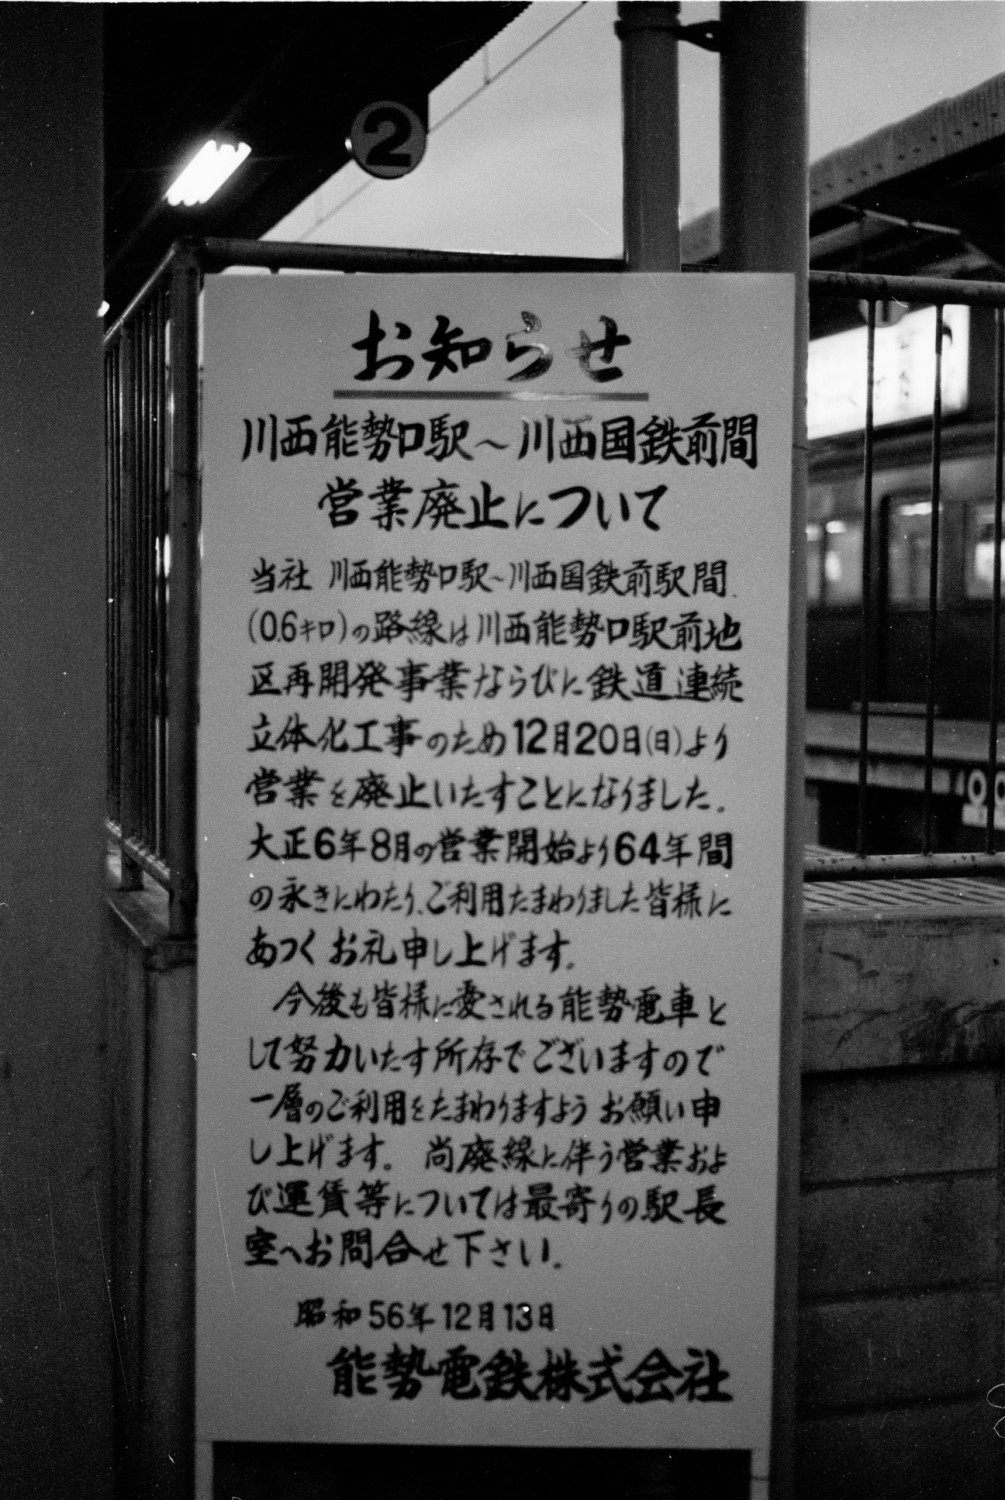 2
お知らせ
川西能勢口駅～川西国鉄前間
営業廃止について
当社 川西能勢口駅~川西国鉄前駅間
(0.6キロ)の路線は川西能勢口駅前地
区再開発事業ならびに鉄道連続
立体化工事のため12月20日(日)より
営業を廃止いたすことになりました。
大正6年8月の営業開始より64年間
の永きにわたり、ご利用たまわりました皆様に
あつくお礼申し上げます。
今後も皆様に愛される能勢電車と
して努力いたす所存でございますので
一層のご利用をたまわりますようお願い申
し上げます。尚廃線に伴う営業およ
び運賃等については最寄りの駅長
室へお問合せ下さい。
昭和56年12月13日
能勢電鉄株式会社